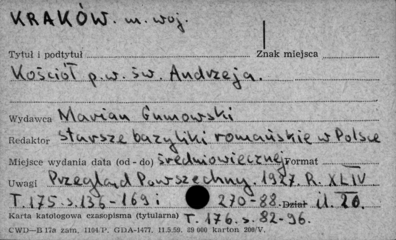 KRAKÓW. m. woj.
Tytuł i podtytuł Znak miejsca
Kościół p.w. św. Andrzeja.
Wydawca Marian Gumowski
Redaktor starsze bazyliki romańskie w Polsce
Miejsce wydania data (od - do) średniowiecznej Format
Uwagi Przegląd Powszechny. 1927. R. XLIV
T. 175. s. 135-169 i 270-88. Dział il. 20.
Karta katalogowa czasopisma (tytularna) T. 176. s. 82-96.
CWD—B 17a zam. 1104/P. GDA-1477. 11.5.59. 39 600 karton 200/V.